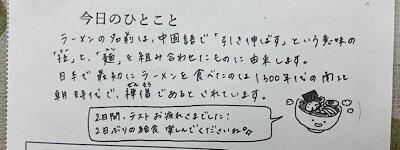 今日のひとこと
ラーメンの名前は、中国語で「引き伸ばす」という意味の
「拉」と、「麺」を組み合わせたものに由来します。
日本で最初にラーメンを食べたのは1500年代の南北
朝時代で、禅僧であるとされています。
ぜんそう
2日間、テストお疲れさまでした!
2日ぶりの給食 楽しんでくださいね